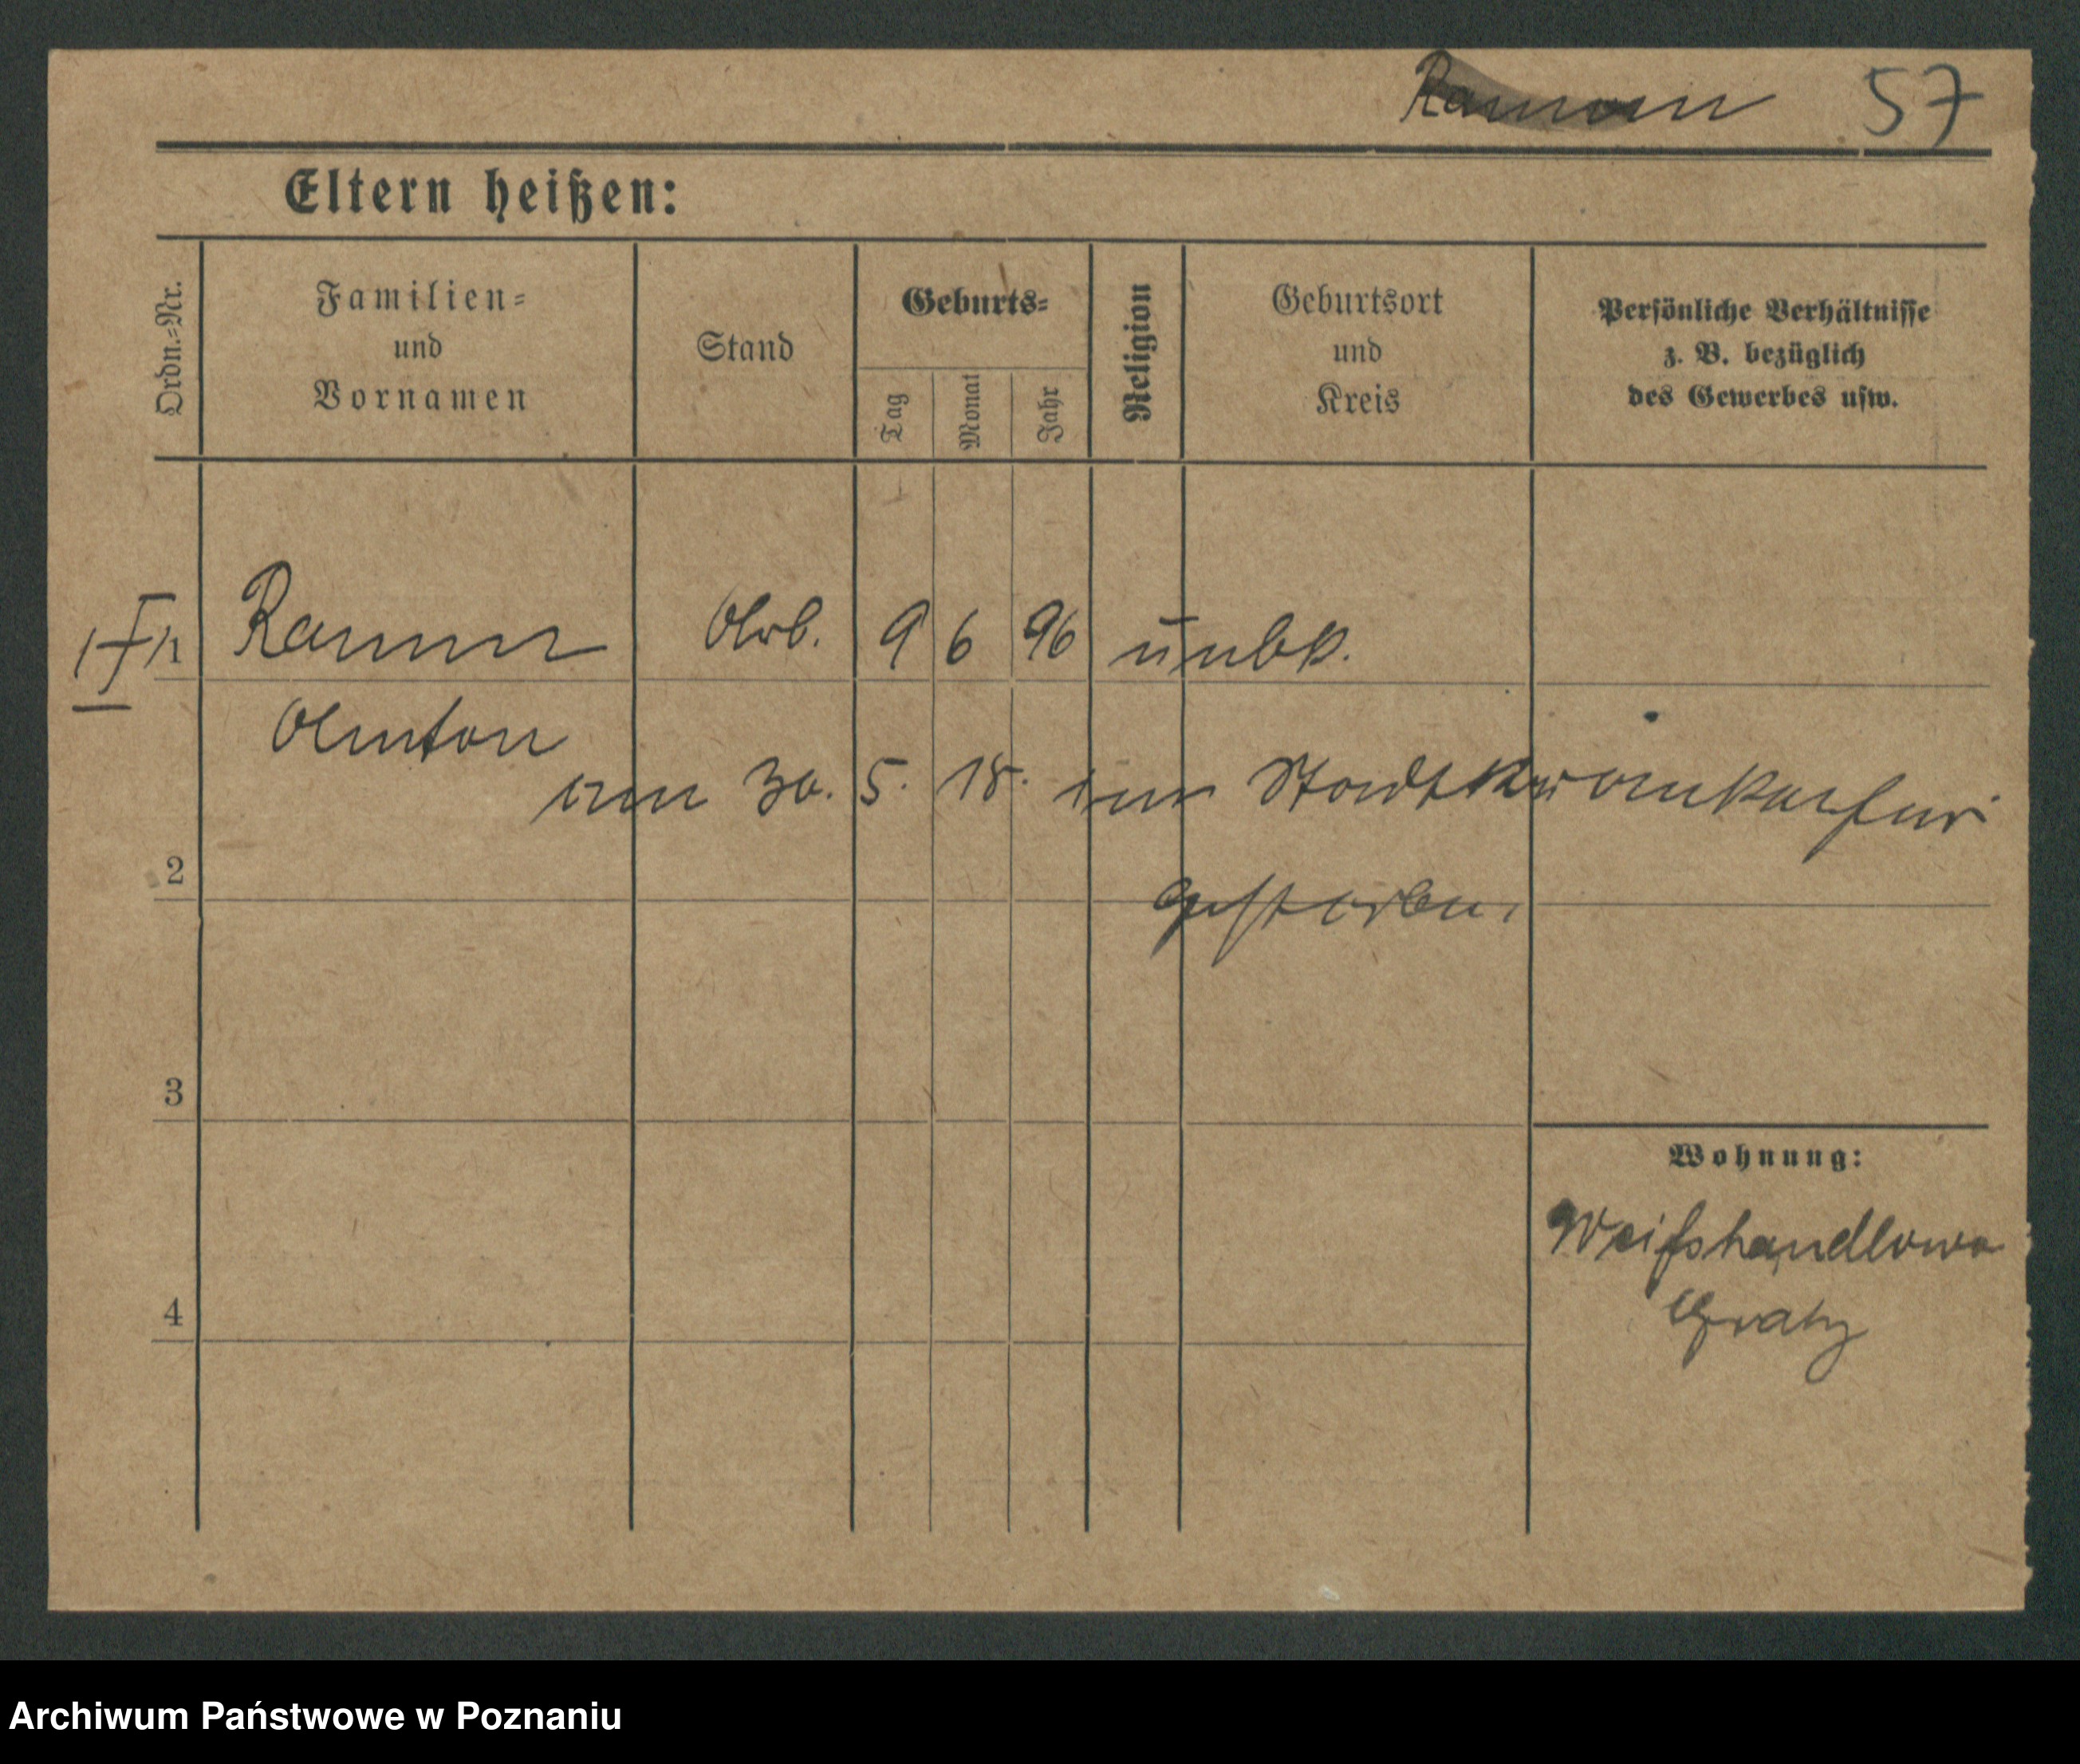 57
Eltern heißen:
Ordn.-Nr.
Familien-
und
Vornamen
Stand
Geburts-
Tag
Monat
Jahr
Religion
Geburtsort
und
Kreis
Persönliche Verhältnisse
z. B. bezüglich
des Gewerbes usw.
1 Arb. 9 6 96 unbk.
Anton
am 30. 5. 18. im Stadtkrankenhaus
gestorben.
2
3
4
Wohnung:
Gratz
Archiwum Państwowe w Poznaniu